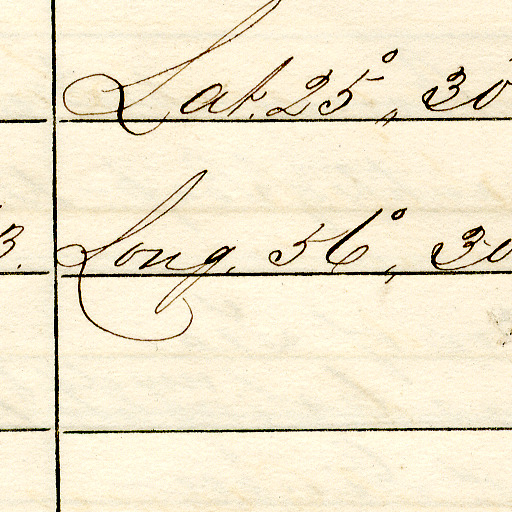 Lat. 25°,, 30
3. Long. 56°,, 30